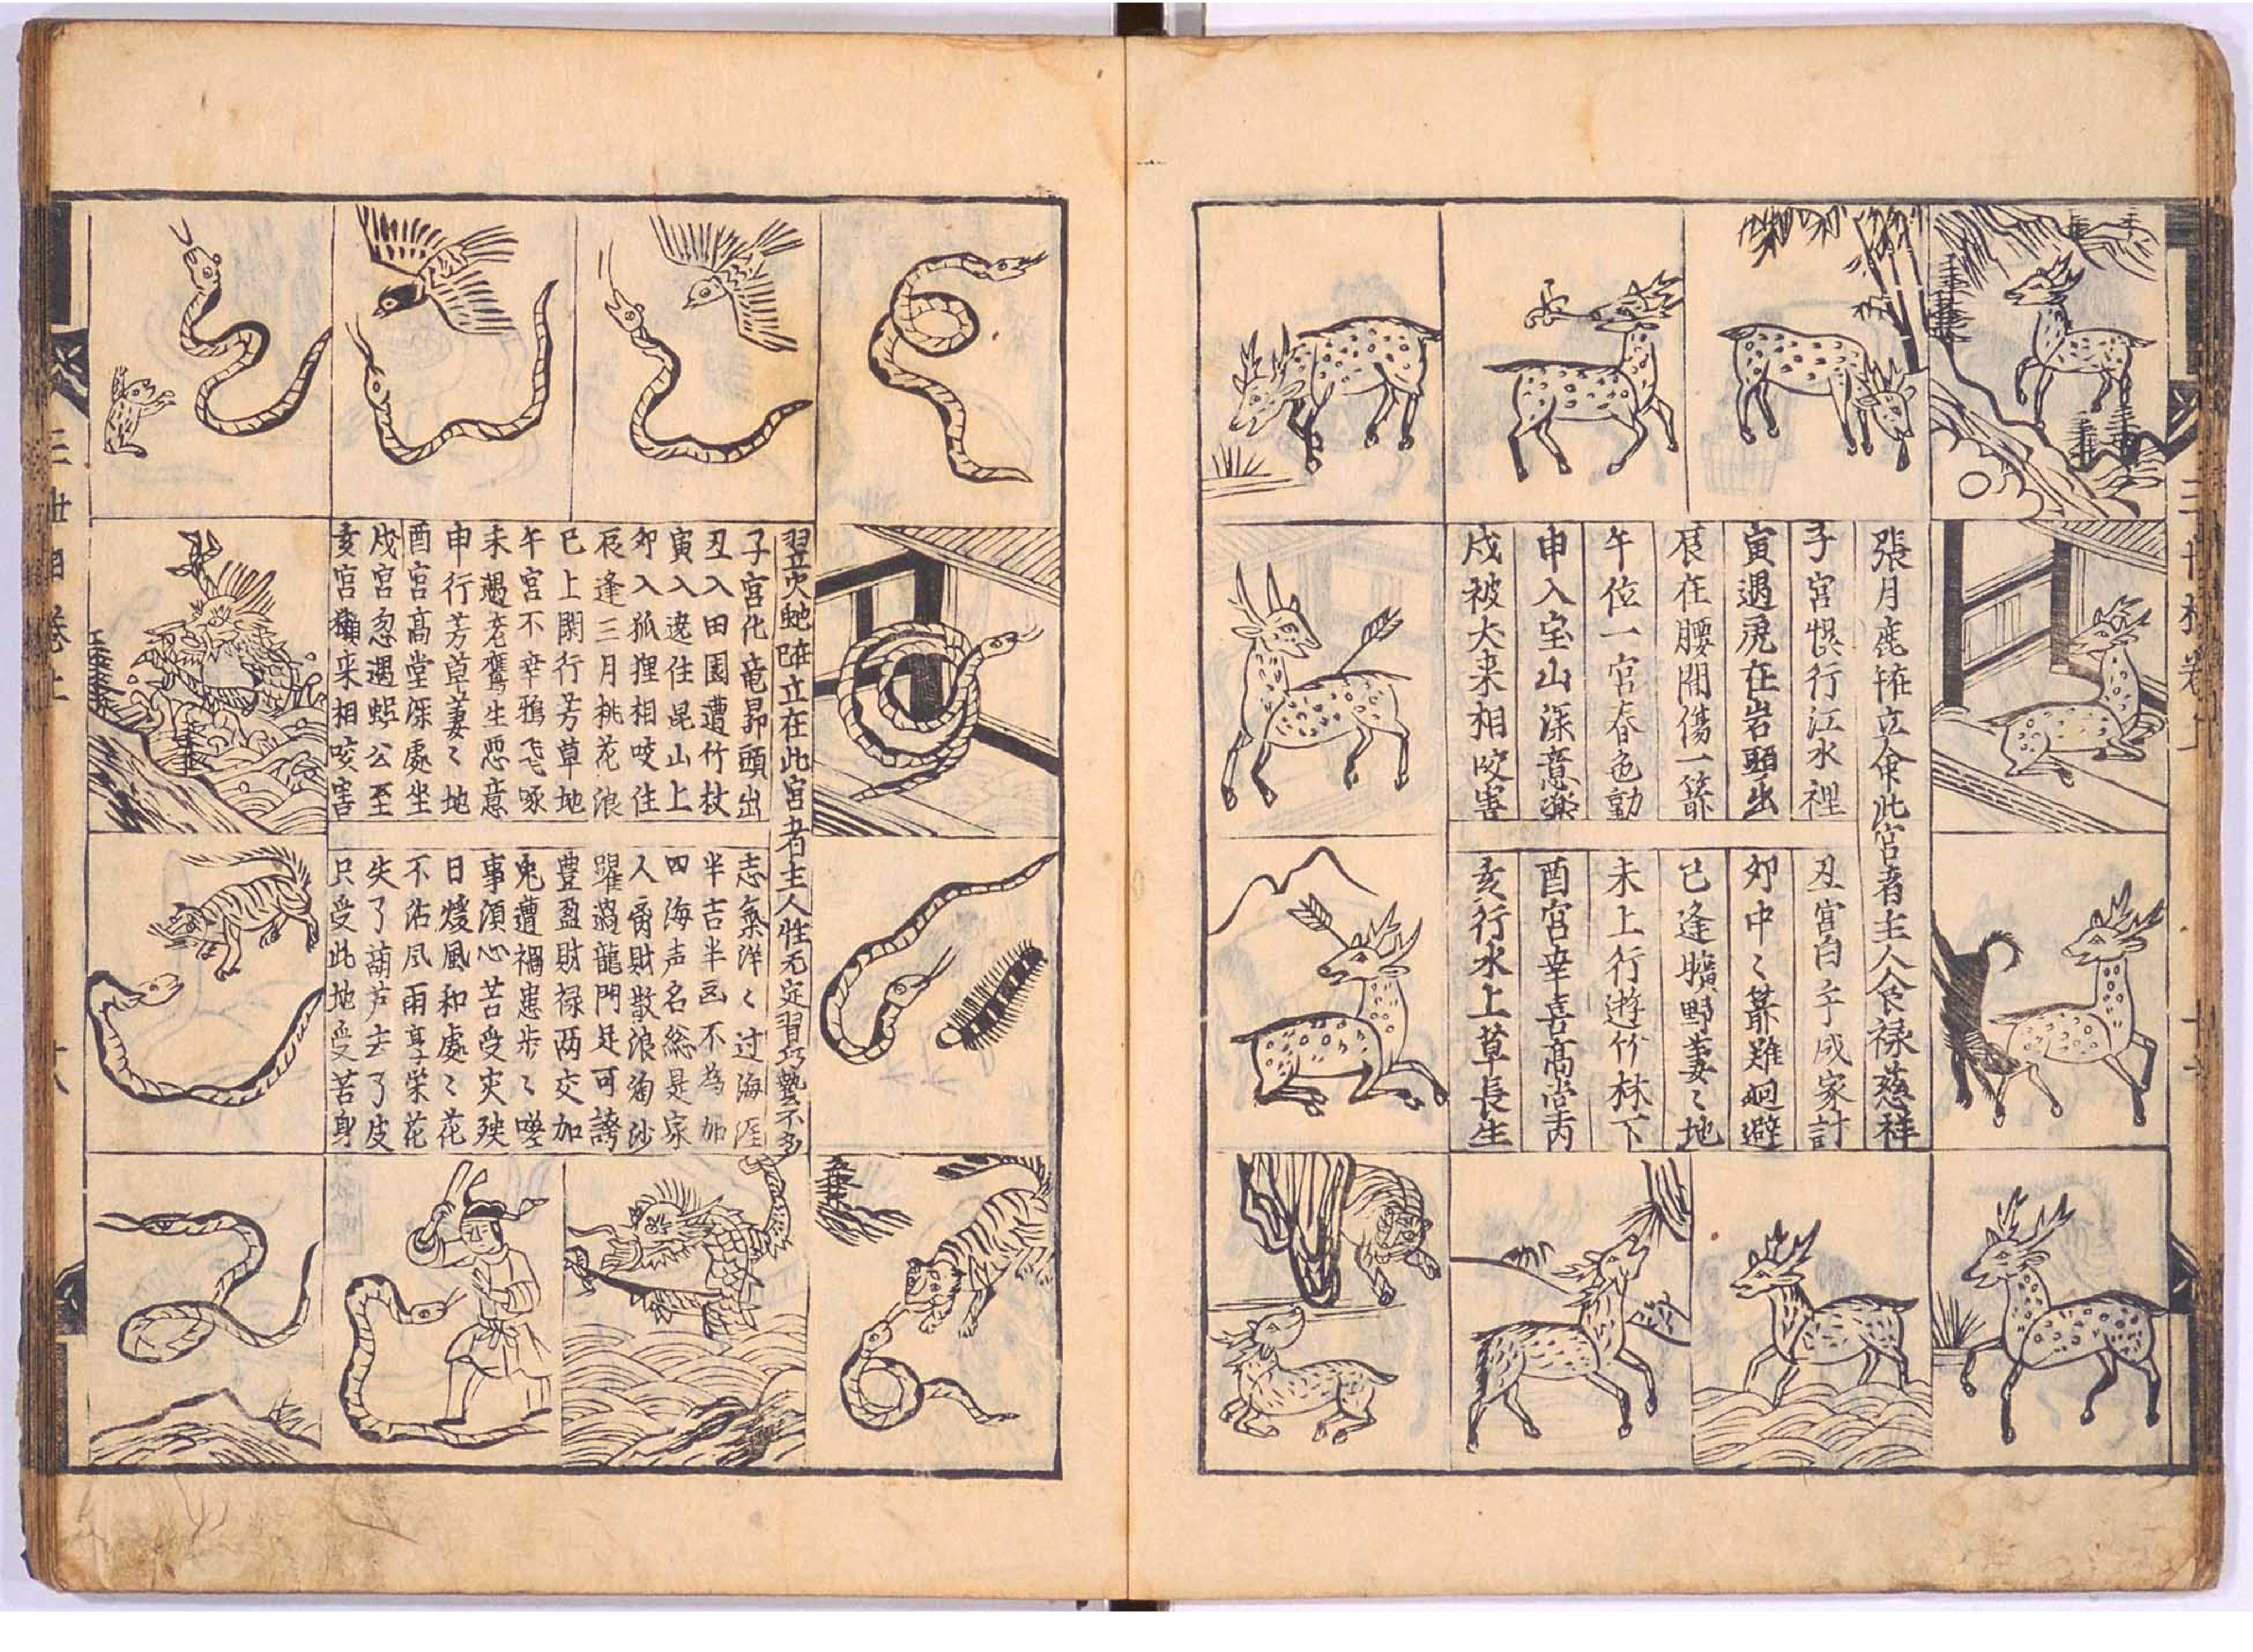 張月鹿雖立命此宮者主人食祿慈祥
子宮惧行江水裡
丑宮白手成家計
寅遇虎在岩頭坐
夘中〻箭難廻避
辰在腰間傷一箭
巳逢曠野萋〻地
午位一宮春色動
未上行遊竹林下
申入宝山深意樂
酉宮幸喜高堂丙
戍被犬来相咬害
亥行水上草長生
翌火蛇雖立在此宮者主人性无定習巧藝不多
子宮化竜昂頭出
志氣洋〻过海涯
丑入田園遭竹杖
半吉半凶不為加
寅入遶住昆山上
四海声名総是家
夘入狐狸相咬住
人脊財散浪淘沙
辰逢三月桃花浪
躍過龍門足可誇
巳上閑行芳草地
豊盈財禄两交加
午宮不幸鴉飞啄
兎遭禍患步〻嗟
未遇老鷹生恶意
事湏心苦受灾殃
申行芳草萋〻地
日煖風和處〻花
酉宮高堂深處坐
不沾风雨享荣花
戍宮忽遇蜈公至
失了葫芦去了皮
亥宮獺来相咳害
只受此地受苦身
三世相卷上
十八